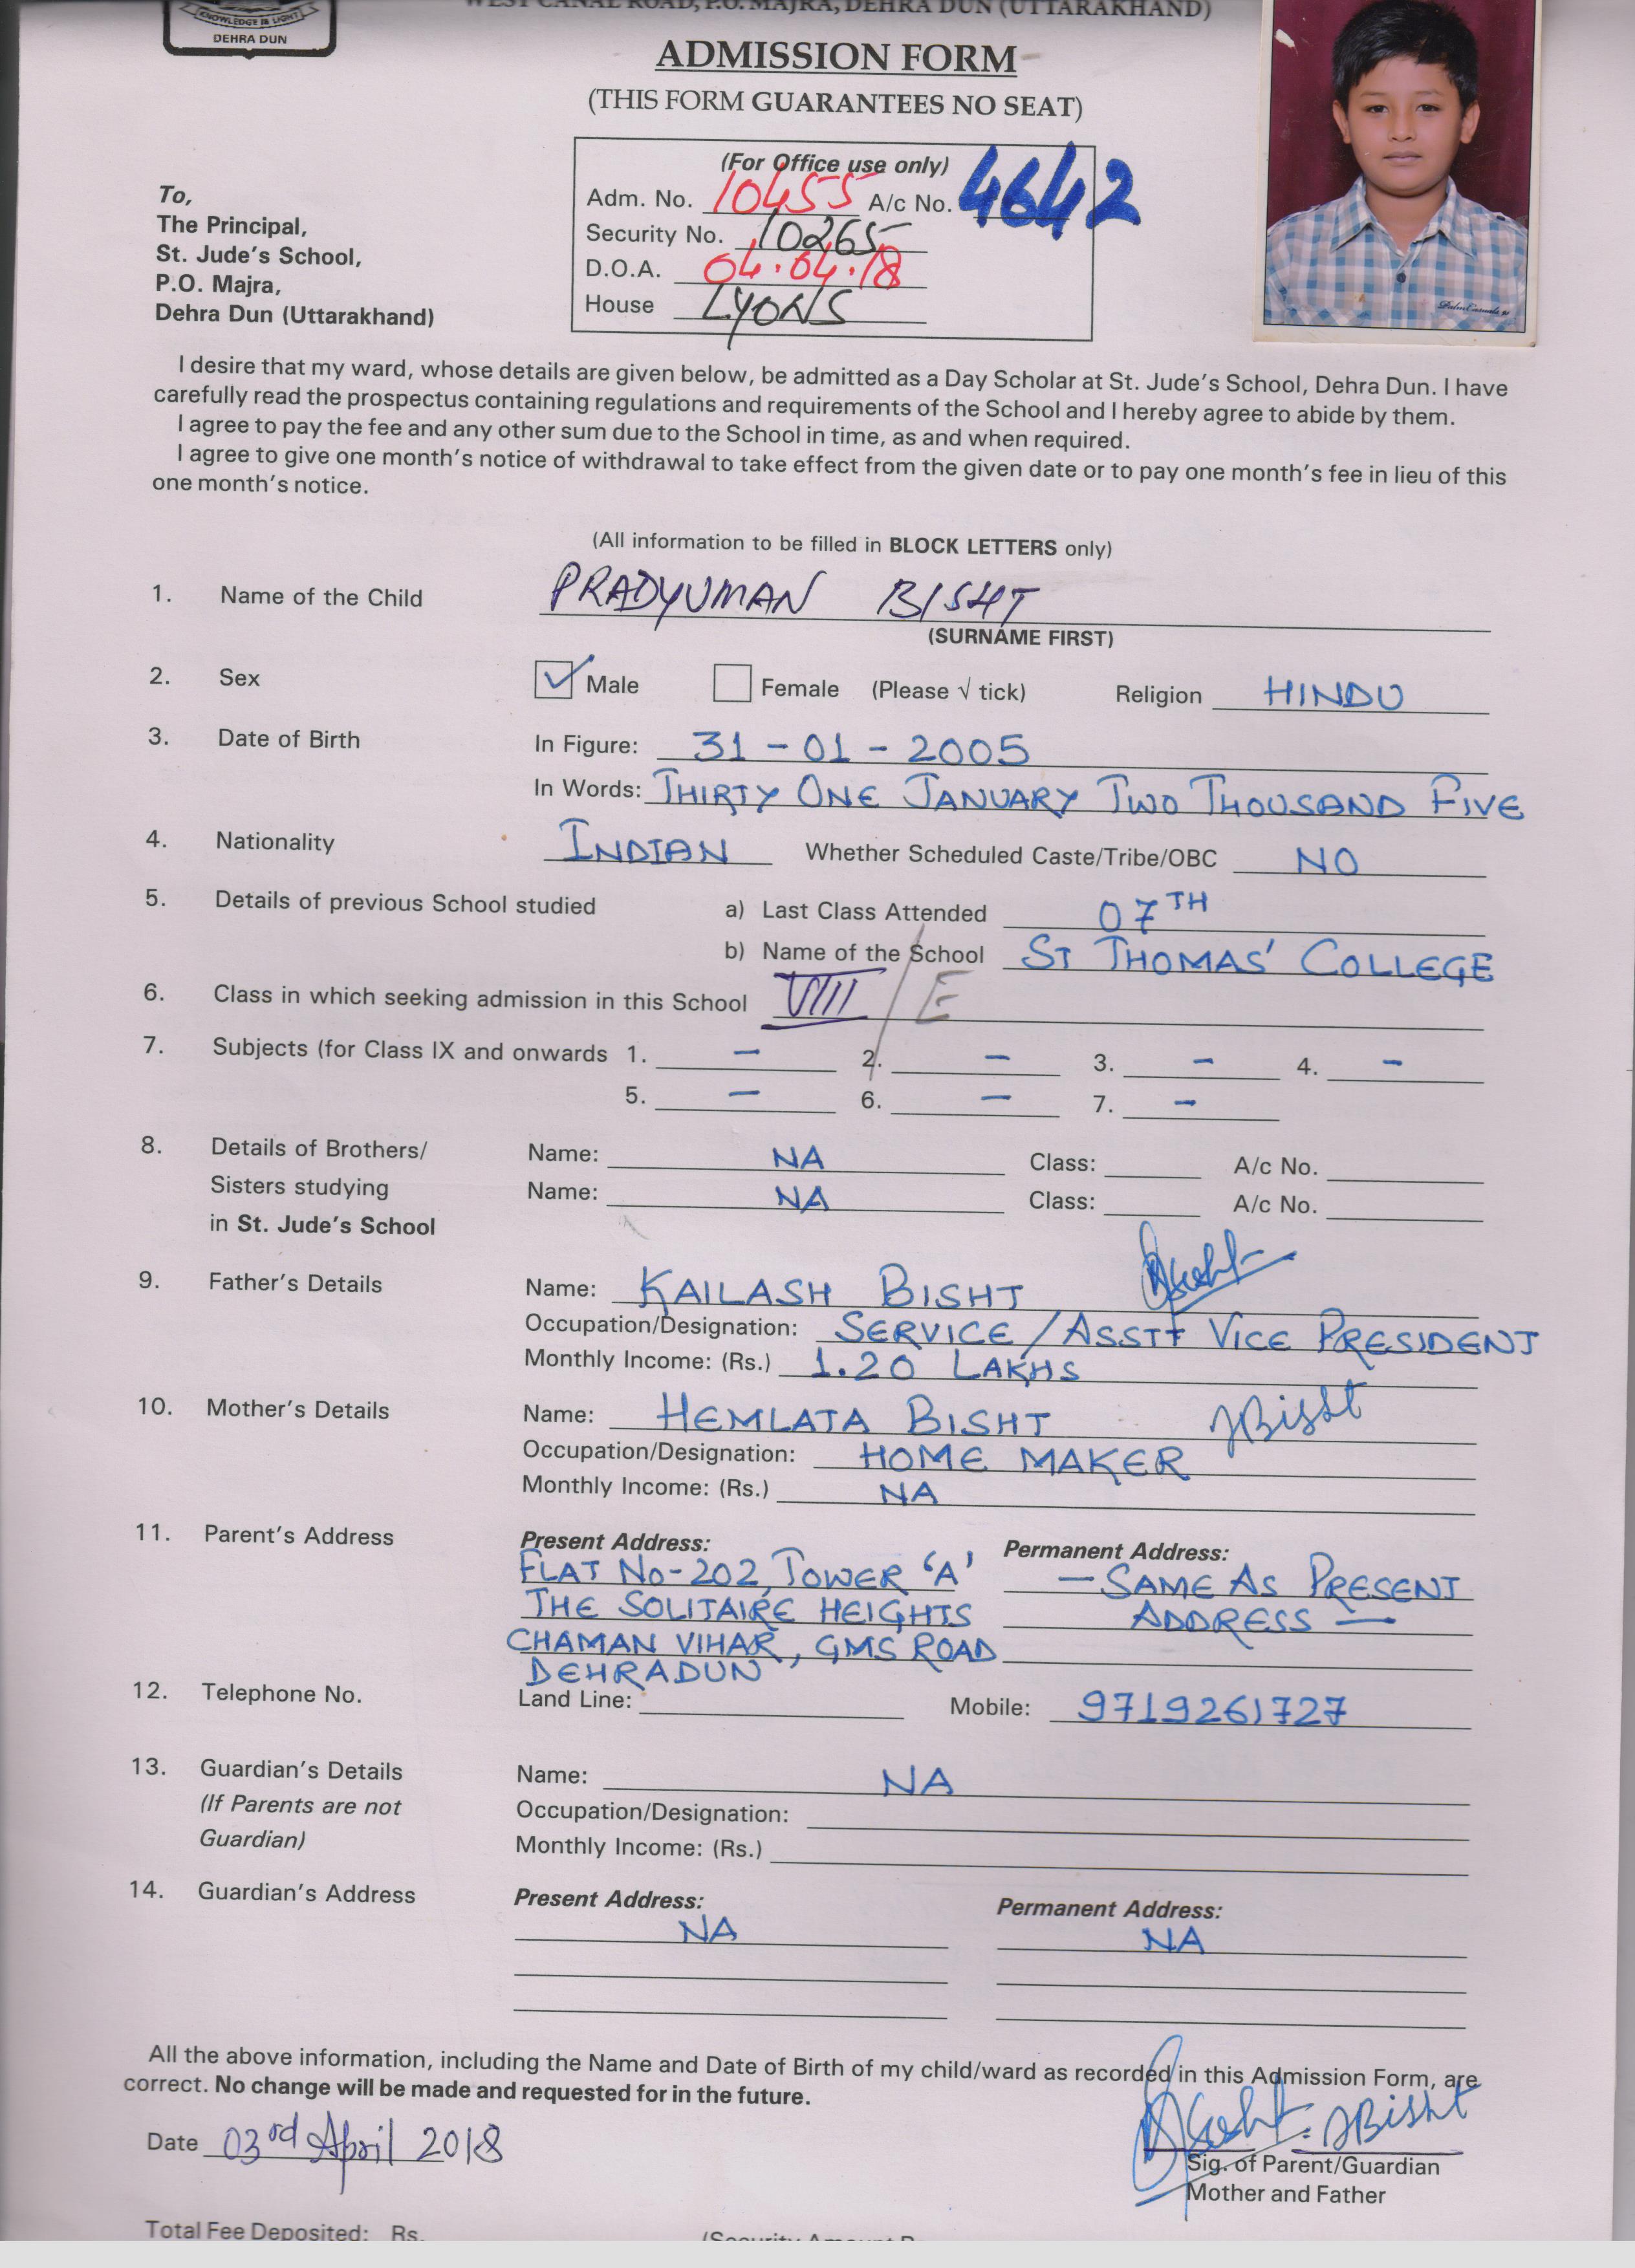 WEST CANAL ROAD, P.O. MAJRA, DEHRA DUN (UTTARAKHAND)
KNOWLEDGE IS LIGHT
DEHRA DUN
ADMISSION FORM
(THIS FORM GUARANTEES NO SEAT)
(For Office use only)
Adm. No. 10455 A/c No. 4642
Security No. 10265
D.O.A. 04.04.18
House LYONS
To,
The Principal,
St. Jude's School,
P.O. Majra,
Dehra Dun (Uttarakhand)
I desire that my ward, whose details are given below, be admitted as a Day Scholar at St. Jude's School, Dehra Dun. I have
carefully read the prospectus containing regulations and requirements of the School and I hereby agree to abide by them.
I agree to pay the fee and any other sum due to the School in time, as and when required.
I agree to give one month's notice of withdrawal to take effect from the given date or to pay one month's fee in lieu of this
one month's notice.
(All information to be filled in BLOCK LETTERS only)
1. Name of the Child PRADYUMAN BISHT
(SURNAME FIRST)
2. Sex Male Female (Please √ tick) Religion HINDU
3. Date of Birth In Figure: 31 - 01 - 2005
In Words: THIRTY ONE JANUARY TWO THOUSAND FIVE
4. Nationality INDIAN Whether Scheduled Caste/Tribe/OBC NO
5. Details of previous School studied a) Last Class Attended 07TH
b) Name of the School ST THOMAS' COLLEGE
6. Class in which seeking admission in this School VIII / E
7. Subjects (for Class IX and onwards 1. - 2. - 3. - 4. -
5. - 6. - 7. -
8. Details of Brothers/ Name: NA Class: A/c No.
Sisters studying Name: NA Class: A/c No.
in St. Jude's School
9. Father's Details Name: KAILASH BISHT
Occupation/Designation: SERVICE / ASSTT VICE PRESIDENT
Monthly Income: (Rs.) 1.20 LAKHS
10. Mother's Details Name: HEMLATA BISHT HBisht
Occupation/Designation: HOME MAKER
Monthly Income: (Rs.) NA
11. Parent's Address Present Address: Permanent Address:
FLAT NO-202, TOWER 'A' — SAME AS PRESENT
THE SOLITAIRE HEIGHTS ADDRESS —
CHAMAN VIHAR, GMS ROAD
DEHRADUN
12. Telephone No. Land Line: Mobile: 9719261727
13. Guardian's Details Name: NA
(If Parents are not Occupation/Designation:
Guardian) Monthly Income: (Rs.)
14. Guardian's Address Present Address: Permanent Address:
NA NA
All the above information, including the Name and Date of Birth of my child/ward as recorded in this Admission Form, are
correct. No change will be made and requested for in the future.
Date 03rd April 2018 HBisht
Sig. of Parent/Guardian
Mother and Father
Total Fee Deposited: Rs.